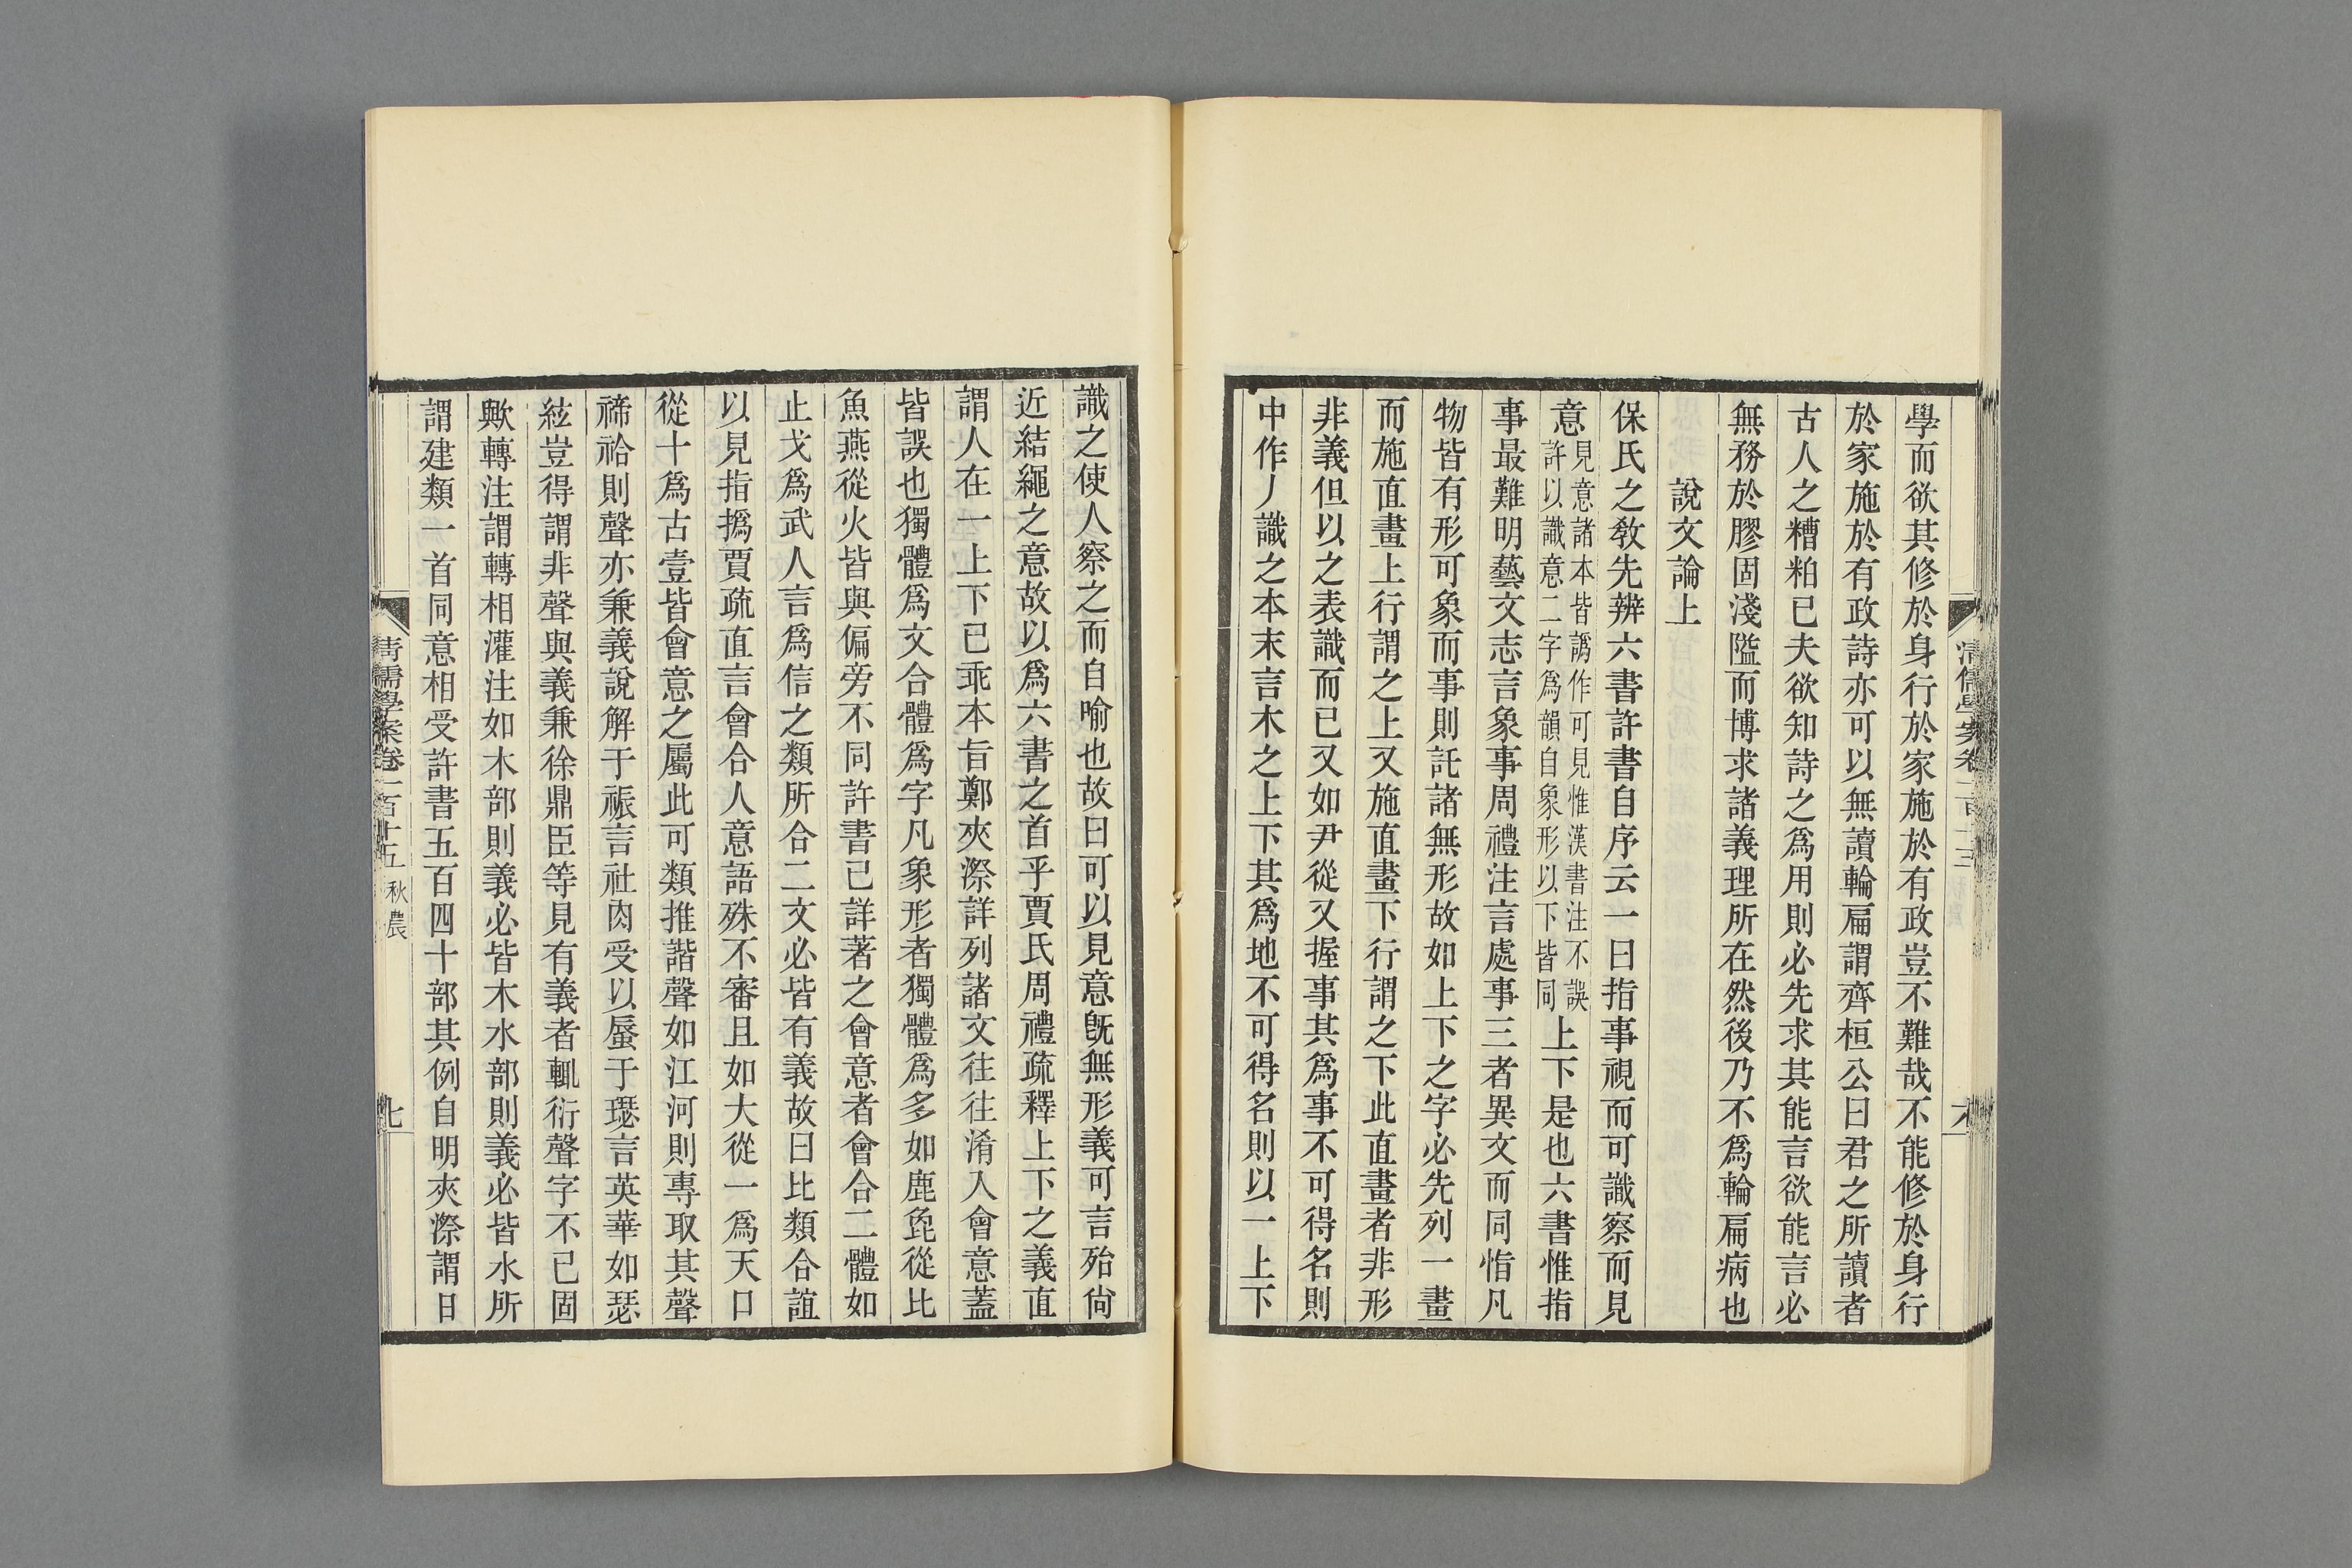 學而欲其修於身行於家施於有政豈不難哉不能修於身行
於家施於有政詩亦可以無讀輪扁謂齊桓公曰君之所讀者
古人之糟粕已夫欲知詩之爲用則必先求其能言欲能言必
無務於膠固淺隘而博求諸義理所在然後乃不爲輪扁病也
說文論上
保氏之敎先辨六書許書自序云一曰指事視而可識察而見
意
見意諸本皆譌作可見惟漢書注不誤
許以識意二字爲韻自象形以下皆同
上下是也六書惟指
事最難明藝文志言象事周禮注言處事三者異文而同恉凡
物皆有形可象而事則託諸無形故如上下之字必先列一畫
而施直畫上行謂之上又施直畫下行謂之下此直畫者非形
非義但以之表識而已又如尹從又握事其爲事不可得名則
中作丿識之本末言木之上下其爲地不可得名則以一上下
識之使人察之而自喻也故曰可以見意旣無形義可言殆尙
近結繩之意故以爲六書之首乎賈氏周禮疏釋上下之義直
謂人在一上下已乖本旨鄭夾漈詳列諸文往往淆入會意蓋
皆誤也獨體爲文合體爲字凡象形者獨體爲多如鹿㲋從比
魚燕從火皆與偏旁不同許書已詳著之會意者會合二體如
止戈爲武人言爲信之類所合二文必皆有義故曰比類合誼
以見指撝賈疏直言會合人意語殊不審且如大從一爲天口
從十爲古壹皆會意之屬此可類推諧聲如江河則專取其聲
禘祫則聲亦兼義說解于祳言社肉受以蜃于璱言英華如瑟
絃豈得謂非聲與義兼徐鼎臣等見有義者輒衍聲字不已固
歟轉注謂轉相灌注如木部則義必皆木水部則義必皆水所
謂建類一首同意相受許書五百四十部其例自明夾漈謂日
清儒學案卷一百十五 秋農
七